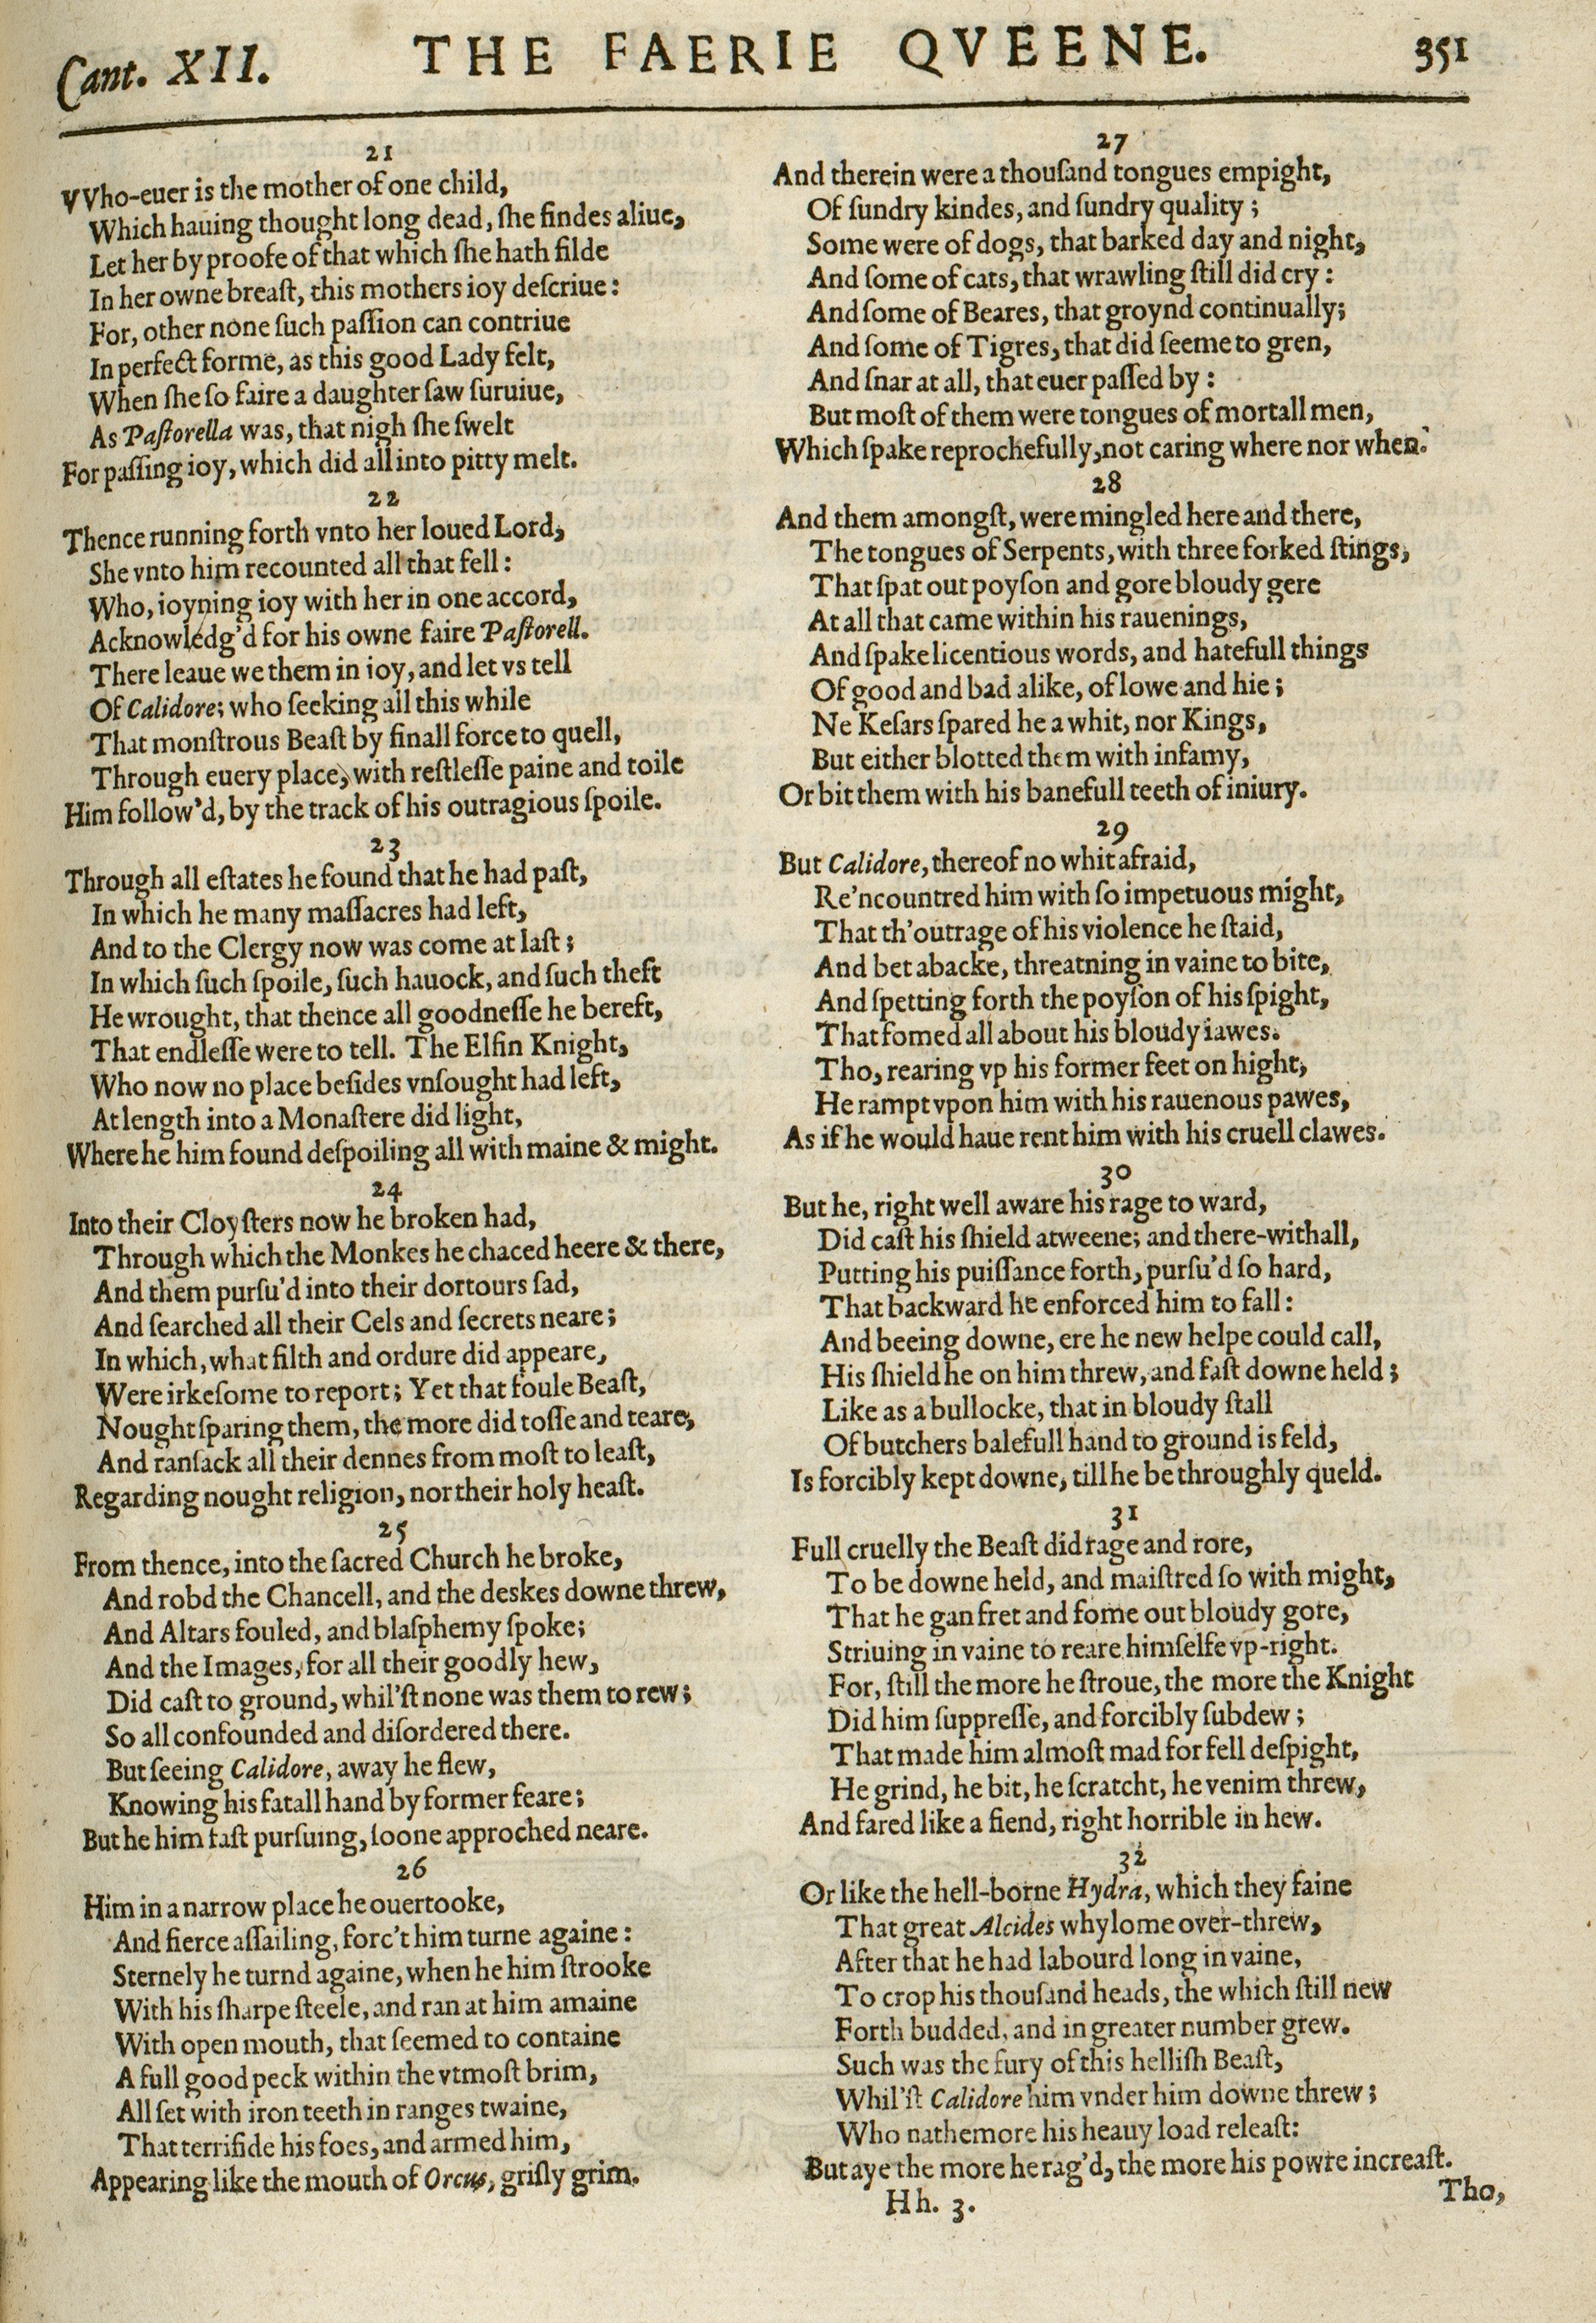 Cant. XII. THE FAERIE QVEENE. 351
21
VVho-euer is the mother of one child,
Which hauing thought long dead, ſhe findes aliue,
Let her by proofe of that which ſhe hath filde
In her owne breaſt, this mothers ioy deſcriue:
For, other none ſuch paſſion can contriue
In perfect forme, as this good Lady felt,
When ſhe ſo faire a daughter ſaw ſuruiue,
As Paſtorella was, that nigh ſhe ſwelt
For paſſing ioy, which did all into pitty melt.
22
Thence running forth vnto her loued Lord,
She vnto him recounted all that fell:
Who, ioyning ioy with her in one accord,
Acknowledg'd for his owne faire Paſtorell.
There leaue we them in ioy, and let vs tell
Of Calidore; who ſeeking all this while
That monſtrous Beaſt by finall force to quell,
Through euery place, with reſtleſſe paine and toile
Him follow'd, by the track of his outragious ſpoile.
23
Through all eſtates he found that he had paſt,
In which he many maſſacres had left,
And to the Clergy now was come at laſt;
In which ſuch ſpoile, ſuch hauock, and ſuch theft
He wrought, that thence all goodneſſe he bereft,
That endleſſe were to tell. The Elfin Knight,
Who now no place beſides vnſought had left,
At length into a Monaſtere did light,
Where he him found deſpoiling all with maine & might.
24
Into their Cloyſters now he broken had,
Through which the Monkes he chaced heere & there,
And them purſu'd into their dortours ſad,
And ſearched all their Cels and ſecrets neare;
In which, what filth and ordure did appeare,
Were irkeſome to report; Yet that foule Beaſt,
Nought ſparing them, the more did toſſe and teare,
And ranſack all their dennes from moſt to leaſt,
Regarding nought religion, nor their holy heaſt.
25
From thence, into the ſacred Church he broke,
And robd the Chancell, and the deskes downe threw,
And Altars fouled, and blaſphemy ſpoke;
And the Images, for all their goodly hew,
Did caſt to ground, whil'ſt none was them to rew;
So all confounded and diſordered there.
But ſeeing Calidore, away he flew,
Knowing his fatall hand by former feare;
But he him faſt purſuing, ſoone approched neare.
26
Him in a narrow place he ouertooke,
And fierce aſſailing, forc't him turne againe:
Sternely he turnd againe, when he him ſtrooke
With his ſharpe ſteele, and ran at him amaine
With open mouth, that ſeemed to containe
A full good peck within the vtmoſt brim,
All ſet with iron teeth in ranges twaine,
That terrifide his foes, and armed him,
Appearing like the mouth of Orcus, griſly grim.
27
And therein were a thouſand tongues empight,
Of ſundry kindes, and ſundry quality;
Some were of dogs, that barked day and night,
And ſome of cats, that wrawling ſtill did cry:
And ſome of Beares, that groynd continually;
And ſome of Tigres, that did ſeeme to gren,
And ſnar at all, that euer paſſed by:
But moſt of them were tongues of mortall men,
Which ſpake reprochefully, not caring where nor when.
28
And them amongſt, were mingled here and there,
The tongues of Serpents, with three forked ſtings,
That ſpat out poyſon and gore bloudy gere
At all that came within his rauenings,
And ſpake licentious words, and hatefull things
Of good and bad alike, of lowe and hie;
Ne Keſars ſpared he a whit, nor Kings,
But either blotted them with infamy,
Or bit them with his banefull teeth of iniury.
29
But Calidore, thereof no whit afraid,
Re'ncountred him with ſo impetuous might,
That th'outrage of his violence he ſtaid,
And bet abacke, threatning in vaine to bite,
And ſpetting forth the poyſon of his ſpight,
That fomed all about his bloudy iawes.
Tho, rearing vp his former feet on hight,
He rampt vpon him with his rauenous pawes,
As if he would haue rent him with his cruell clawes.
30
But he, right well aware his rage to ward,
Did caſt his ſhield atweene; and there-withall,
Putting his puiſſance forth, purſu'd ſo hard,
That backward he enforced him to fall:
And beeing downe, ere he new helpe could call,
His ſhield he on him threw, and faſt downe held;
Like as a bullocke, that in bloudy ſtall
Of butchers balefull hand to ground is feld,
Is forcibly kept downe, till he be throughly queld.
31
Full cruelly the Beaſt did rage and rore,
To be downe held, and maiſtred ſo with might,
That he gan fret and fome out bloudy gore,
Striuing in vaine to reare himſelfe vp-right.
For, ſtill the more he ſtroue, the more the Knight
Did him ſuppreſſe, and forcibly ſubdew;
That made him almoſt mad for fell deſpight,
He grind, he bit, he ſcratcht, he venim threw,
And fared like a fiend, right horrible in hew.
32
Or like the hell-borne Hydra, which they faine
That great Alcides whylome over-threw,
After that he had labourd long in vaine,
To crop his thouſand heads, the which ſtill new
Forth budded, and in greater number grew.
Such was the fury of this helliſh Beaſt,
Whil'ſt Calidore him vnder him downe threw;
Who nathemore his heauy load releaſt:
But aye the more he rag'd, the more his powre increaſt.
Hh. 3. Tho,